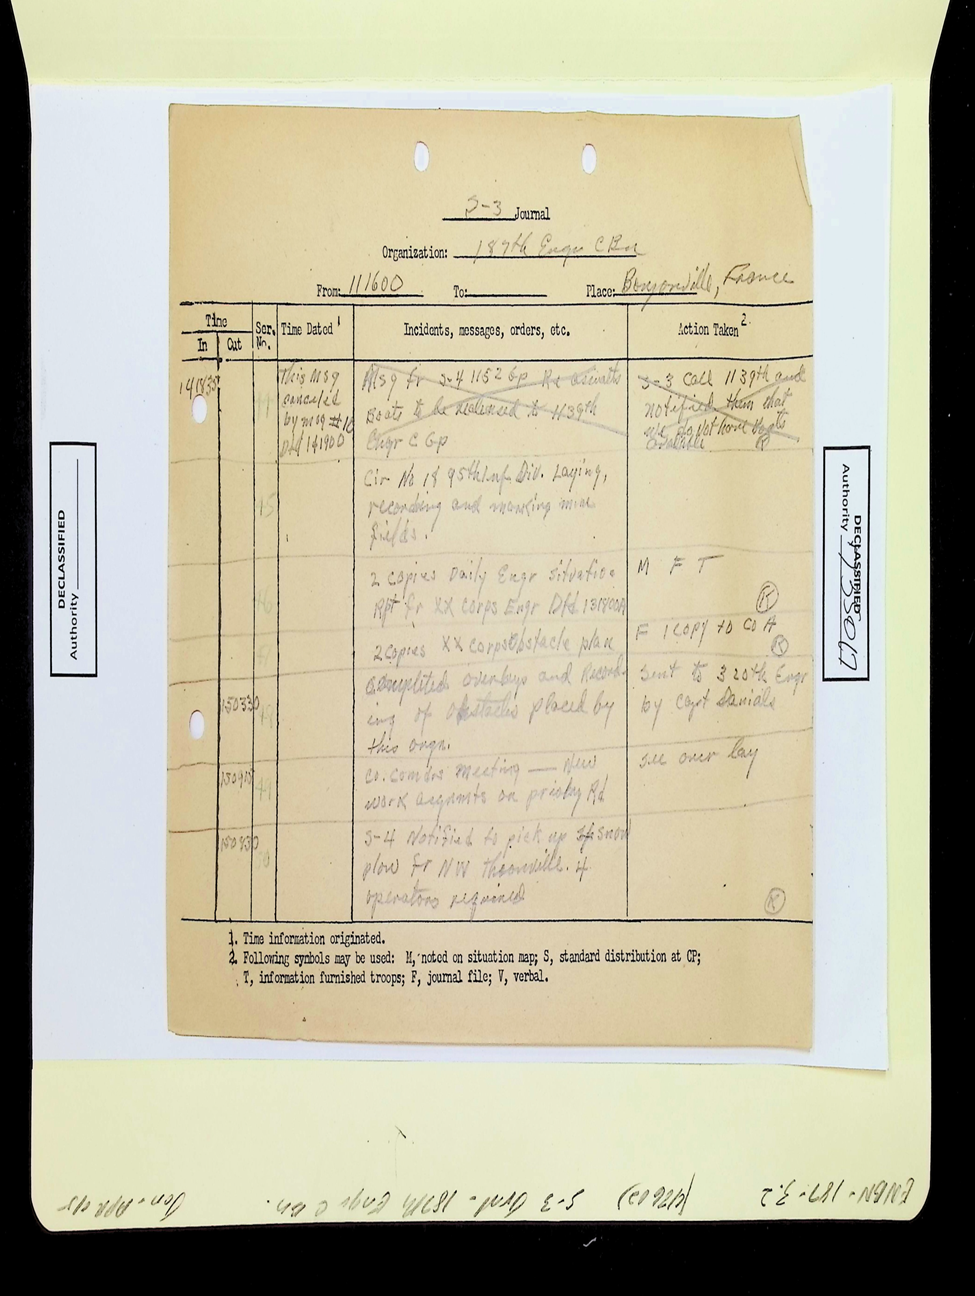 S-3 Journal
Organization: 187th Engr C Bn
From: 111600 To: Place: Bouzonville, France
Time
In Out Ser. No. Time Dated 1 Incidents, messages, orders, etc. Action Taken 2
141835
This Msg
canceled
by msg #10
Dtd 141900
Msg fr S-4 1152 Gp Re assaults
Boats to be released to 1139th
Engr C Gp
S-3 Call 1139th and
notified them that
we do not have boats
available
Cir No 18 95th Inf Div. Laying,
recording and marking mine
fields.
2 copies Daily Engr Situation
Rpt fr XX Corps Engr Dtd 131800A
M F T
R
2 copies XX Corps Obstacle plan
F 1 copy to Co A
R
150330
Completed overlays and Record
ing of Obstacles placed by
this orgn.
Sent to 320th Engr
by Capt Daniels
Co. Comdrs Meeting — New
work asgnmts on priority Rd
see over lay
S-4 Notified to pick up snow
plow fr NW Thionville. 4
operators required
R
1. Time information originated.
2. Following symbols may be used: M, noted on situation map; S, standard distribution at CP;
T, information furnished troops; F, journal file; V, verbal.
DECLASSIFIED
Authority
DECLASSIFIED
Authority 735017
ENBN-187-3.2 (47602) S-3 Jrnl - 187th Engr C Bn. Jan-Apr 45